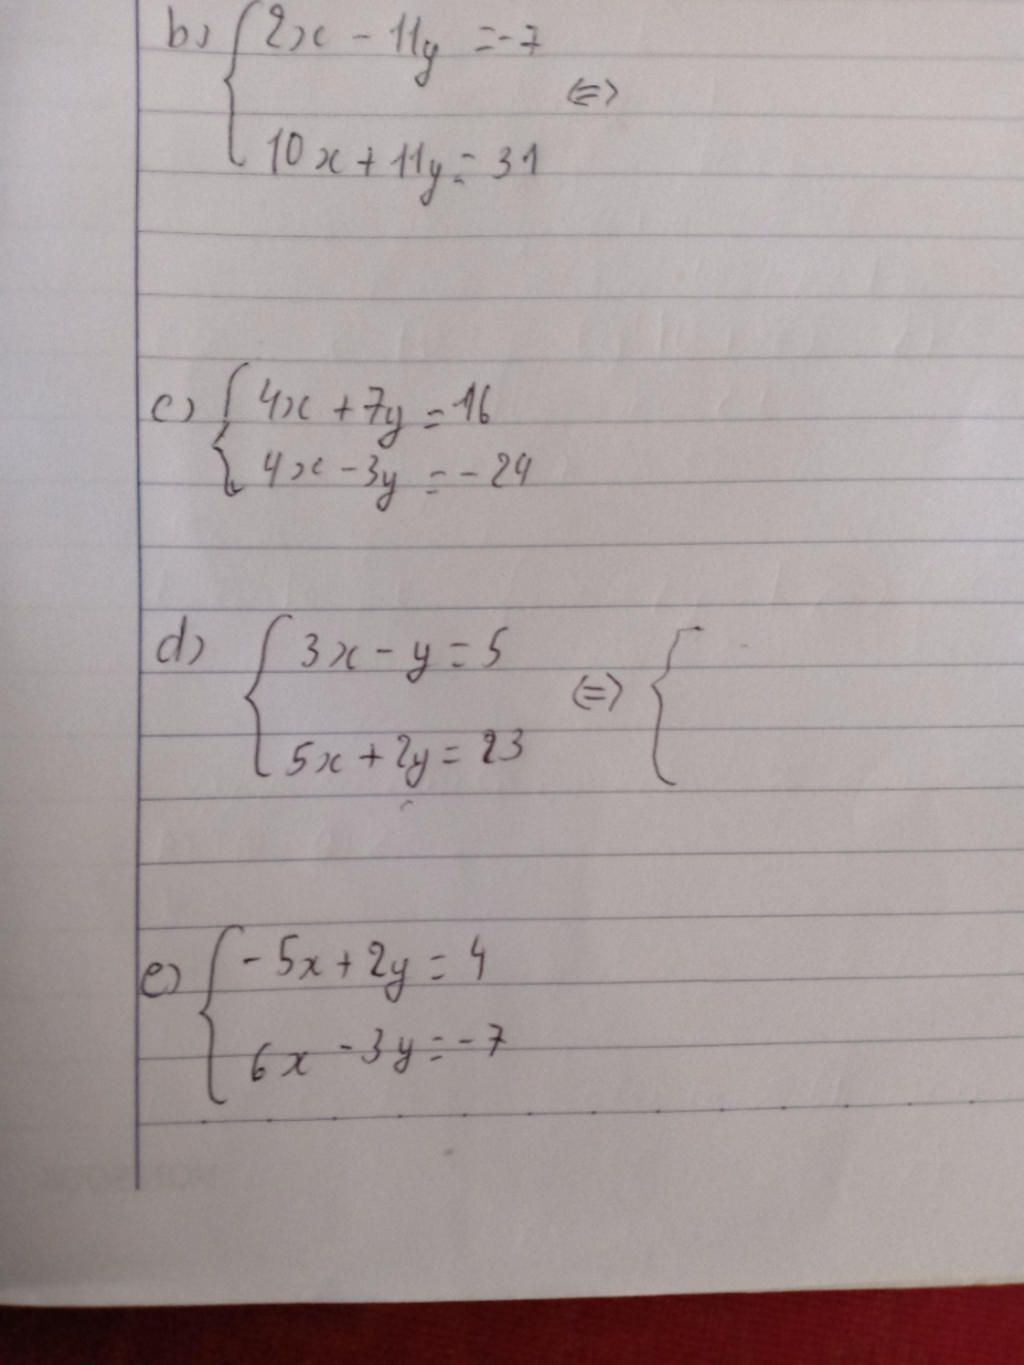 b) { 2x - 11y = -7
⇔
10x + 11y = 31
c) { 4x + 7y = 16
4x - 3y = - 24
d) { 3x - y = 5
⇔ {
5x + 2y = 23
e) { - 5x + 2y = 4
6x - 3y = - 7